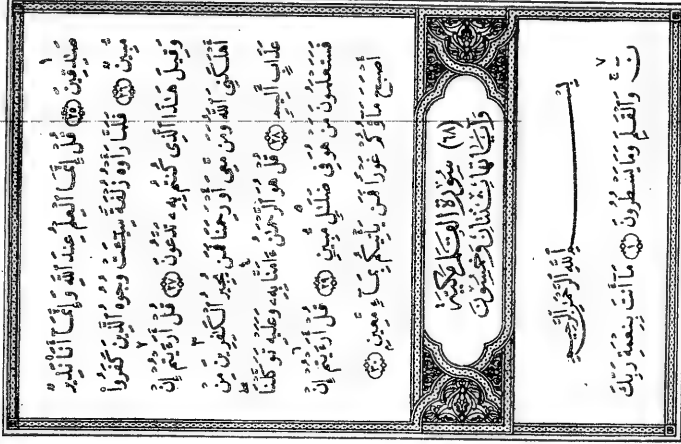 صَـٰدِقِينَ ۝٢٥ قُلْ إِنَّمَا ٱلْعِلْمُ عِندَ ٱللَّهِ وَإِنَّمَآ أَنَا۠ نَذِيرٌ
مُّبِينٌ ۝٢٦ فَلَمَّا رَأَوْهُ زُلْفَةً سِيٓـَٔتْ وُجُوهُ ٱلَّذِينَ كَفَرُوا۟
وَقِيلَ هَـٰذَا ٱلَّذِى كُنتُم بِهِۦ تَدَّعُونَ ۝٢٧ قُلْ أَرَءَيْتُمْ إِنْ
أَهْلَكَنِىَ ٱللَّهُ وَمَن مَّعِىَ أَوْ رَحِمَنَا فَمَن يُجِيرُ ٱلْكَـٰفِرِينَ مِنْ
عَذَابٍ أَلِيمٍ ۝٢٨ قُلْ هُوَ ٱلرَّحْمَـٰنُ ءَامَنَّا بِهِۦ وَعَلَيْهِ تَوَكَّلْنَا
فَسَتَعْلَمُونَ مَنْ هُوَ فِى ضَلَـٰلٍ مُّبِينٍ ۝٢٩ قُلْ أَرَءَيْتُمْ إِنْ
أَصْبَحَ مَآؤُكُمْ غَوْرًا فَمَن يَأْتِيكُم بِمَآءٍ مَّعِينٍۭ ۝٣٠
(٦٨) سُورَةُ القَلَمِ مَكِيَّة
وَآيَاتُهَا ثِنْتَانِ وَخَمْسُونَ
بِسْمِ ٱللَّهِ ٱلرَّحْمَـٰنِ ٱلرَّحِيمِ
نٓ ۚ وَٱلْقَلَمِ وَمَا يَسْطُرُونَ ۝١ مَآ أَنتَ بِنِعْمَةِ رَبِّكَ